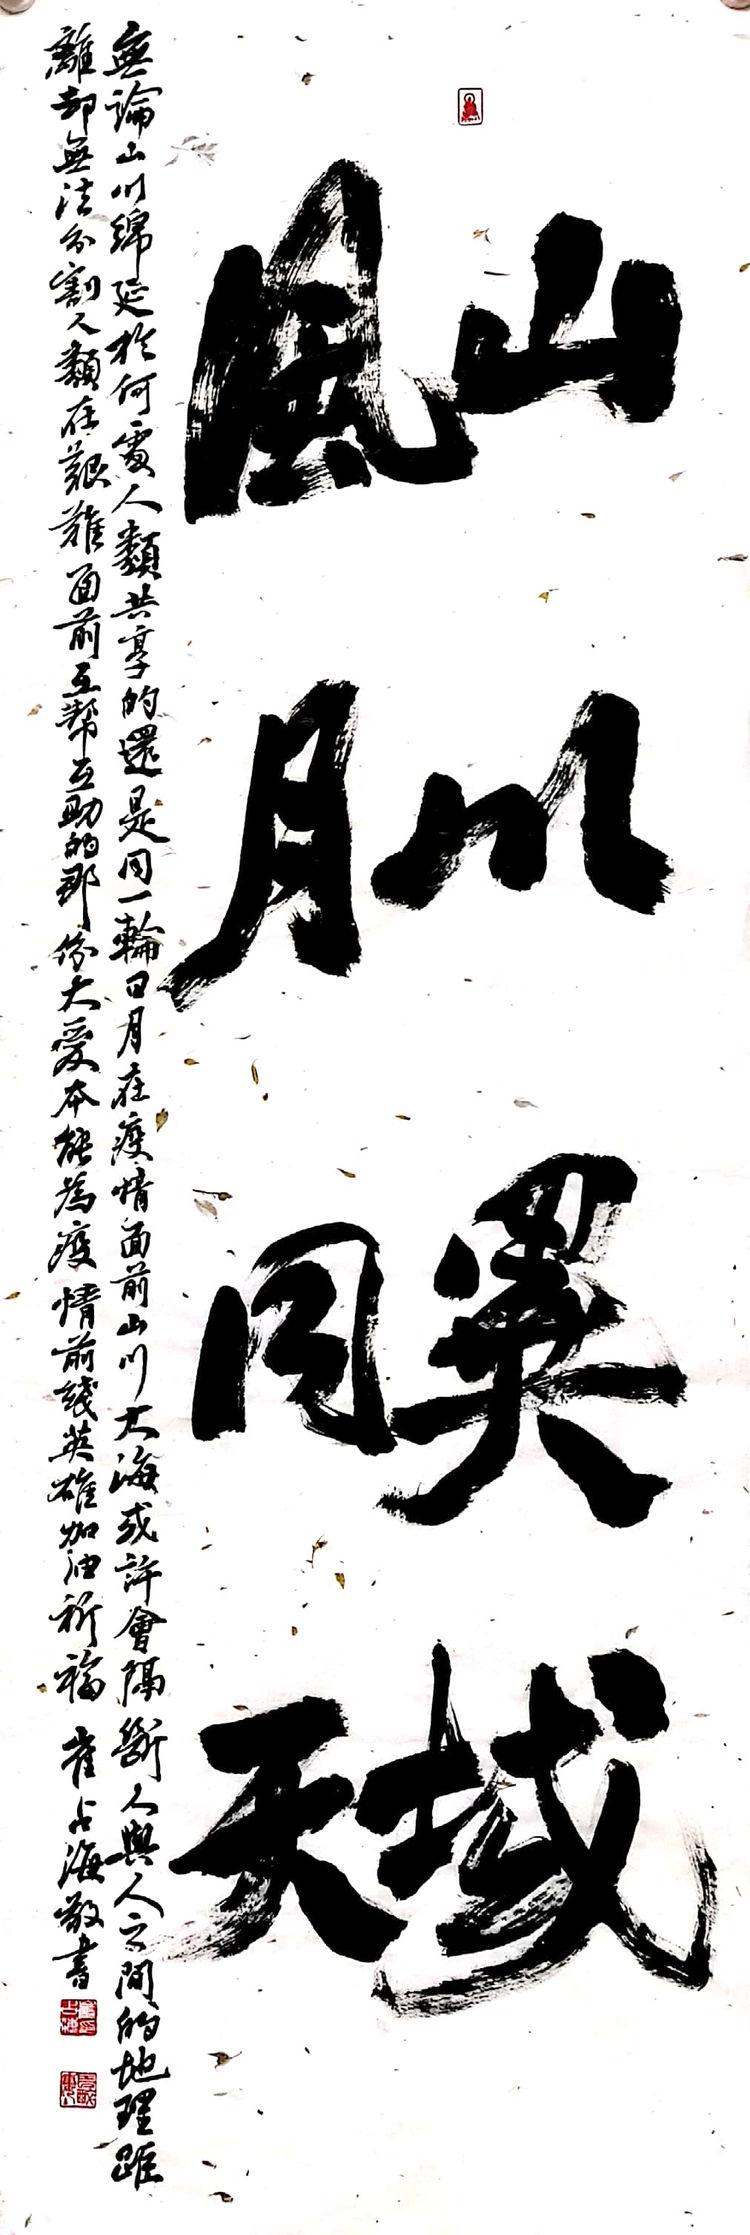 山川異域
風月同天
無論山川綿延於何處人類共享的還是同一輪日月在疫情面前山川大海或許會隔斷人與人之間的地理距
離卻無法分割人類在艱難面前互幫互助的那份大愛本能為疫情前綫英雄加油祈福 崔占海敬書